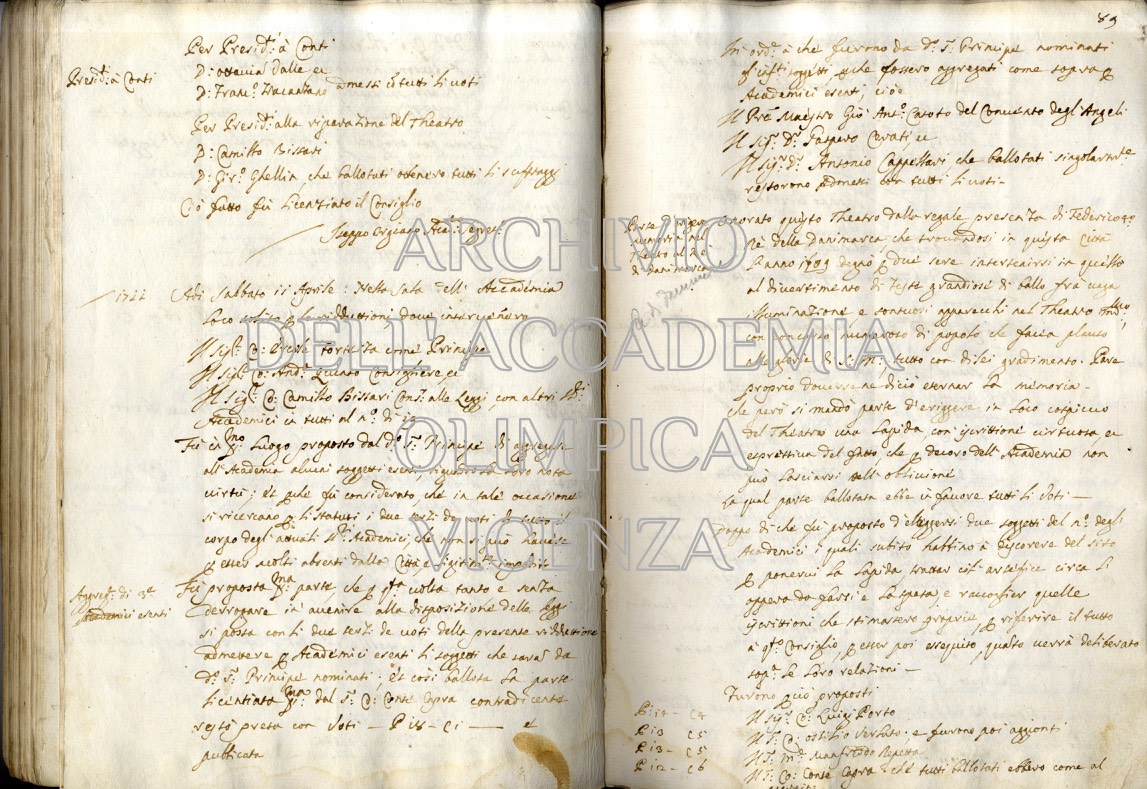 Per Presid.ti à Conti
Presid.ti à Conti
D: Ottavian dalle
D: Franc.o Tracanzano admessi tutti li voti
Per Presid.ti alla riparazione del Theatro
D: Camillo Bissari
D: Gir.o Ghellin che ballotati ottenero tutti li suffraggi
Ciò fatto fù licenziato il Consiglio
1711 Adi Sabbato 11 Aprile: Nella Sala dell' Accademia
Loco solito le riduttioni, dove intervenero
Il Sig.r Co: Ercole Principe
Il Sig.r Co: And.a Quinto Consigliere, et
Il Sig.r Co: Camillo Bissari Cons.r alle Leggi, con altri SS.ri
Academici in tutti al n.o di
Fù in p.mo Luogo proposto dal d.o S.r Principe di aggregar
all' Academia alcuni soggetti esenti, riguardata loro nota
virtù; et fù considerato, che in tale occasione
si ricercano li Statuti i due terzi de voti di tutto il
corpo degl'attuali SS.ri Academici, che non si può havere
esser molti absenti dalla Città,
Aggreg.ne di 3
Academici esenti
Fù proposta parte, che volta tanto e senza
derrogare in avenire alla disposizione delle Leggi
si possa con li due terzi de voti della presente riduttione
admettere Academici esenti li soggetti che saran da
d.o S.r Principe nominati; et così ballota la parte
dal S.r Co: Conte Capra contradicente
restò presa con voti — P 18 - C 1 — et
publicata
89
In ord.e à che furono da d.o S.r Principe nominati
soggetti fossero aggregati come sopra
Academici esenti, cioè
Il Pre Maestro Gio: Ant.o Casotto del Convento degl'Angeli
Il Sig.r D.r Gaspero Cerati, et
Il Sig.r D.r Antonio Cappellari che ballotati singolarm.te
restorono admessi con tutti li voti.
Parte d'eriger
memoria nel
Theatro al Re
di Danimarca
Onorato questo Theatro dalla regale presenza di Federico 4.o
Rè della Danimarca che trovandosi in questa Città
l'anno 1709 degnò due sere intertenirsi in questo
al divertimento di feste grandiose di ballo frà vaga
illuminazione e sontuosi apparecchi nel Theatro
con concorso numeroso di popolo che facea plauso
alle glorie di S: M: tutto con di lei gradimento. Pare
proprio doversene di ciò eternar la memoria.
che però si mandò parte d'erigere in loco cospicuo
del Theatro una Lapida, con iscrittione virtuosa, et
espressiva del fatto che decoro dell'Academia non
può lasciarsi nell'oblivione
La qual parte ballotata ebbe in favore tutti li voti —
Doppo di che fù proposto d'eleggersi due soggetti del n.o degl'
Academici i quali subito habbino à discorere del sito
ponervi la Lapida, trattar col' artefice circa l'
oppera da farsi, e la spesa, e raccoglier quelle
iscrittioni che stimassero proprie, riferire il tutto
à q.to Consiglio, esser poi esequito, quanto verrà deliberato
sop.a le loro relationi —
Furono perciò proposti
P: 14 - C 4 Il Sig.r Co: Luigi Porto
P: 13 C 5 Il S.r Co: Ostilio Versato: e furono poi aggionti
P: 13 - C 5 Il S.r M.se Manfredo Repetta
P 12 - C 6 Il S.r Co: Conte Capra: che tutti ballotati ebbero come al
ARCHIVIO
DELL'ACCADEMIA
OLIMPICA
VICENZA